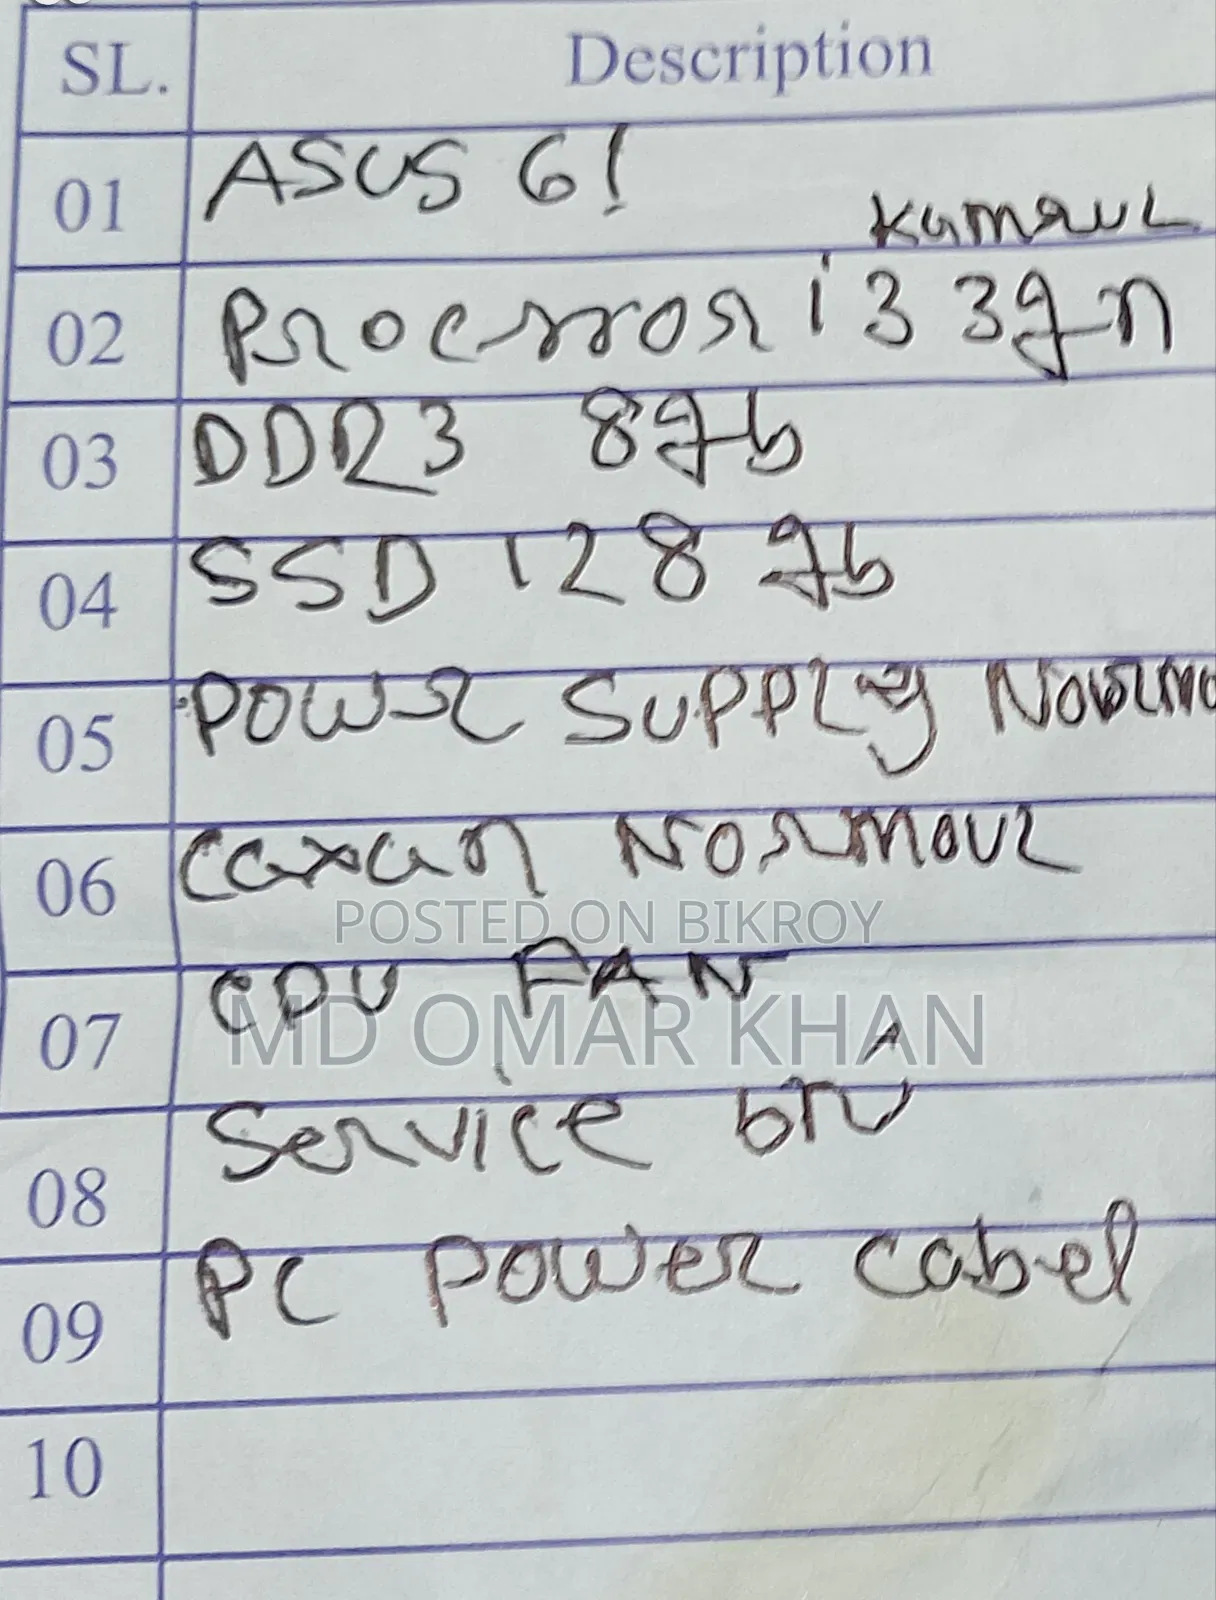 SL. Description
01 ASUS 61
Kamrul
02 Processor i3 3gn
03 DDR3 8gb
04 SSD 128 gb
05 Power Supply
06 Normoul
POSTED ON BIKROY
07 CPU FAN
MD OMAR KHAN
08 Service
09 PC Power Cabel
10